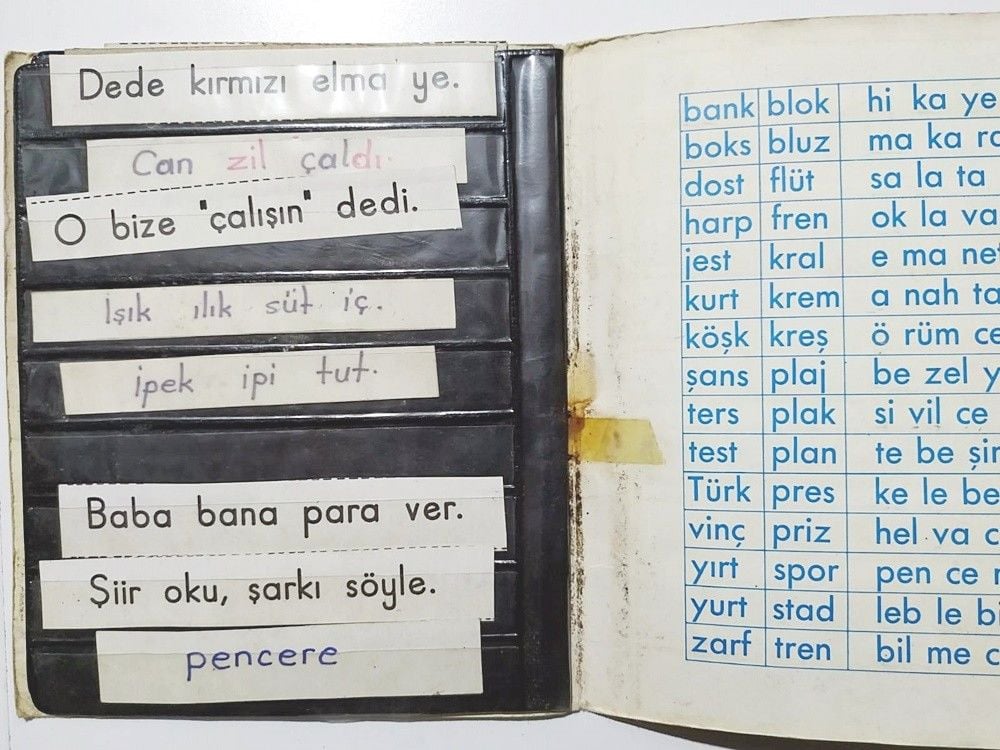 Dede kırmızı elma ye.
Can zil çaldı.
O bize "çalışın" dedi.
Işık ılık süt iç.
ipek ipi tut.
Baba bana para ver.
Şiir oku, şarkı söyle.
pencere
bank blok hi ka ye
boks bluz ma ka ra
dost flüt sa la ta
harp fren ok la va
jest kral e ma net
kurt krem a nah ta
köşk kreş ö rüm ce
şans plaj be zel y
ters plak si vil ce
test plan te be şir
Türk pres ke le be
vinç priz hel va c
yırt spor pen ce r
yurt stad leb le bi
zarf tren bil me c